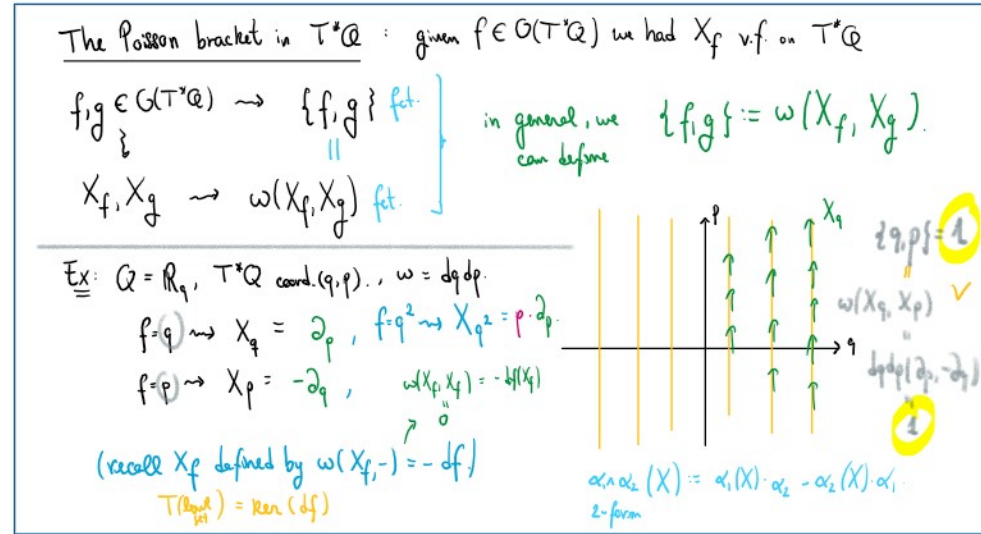 The Poisson bracket in T*Q : given f ∈ O(T*Q) we had X_f v.f. on T*Q
f,g ∈ O(T*Q) ⇝ {f,g} fct.
||
X_f, X_g ⇝ ω(X_f, X_g) fct.
in general, we
can define
{f,g} := ω(X_f, X_g).
Ex: Q = ℝ_q, T*Q coord.(q,p)., ω = dqdp.
f=q ⇝ X_q = ∂_p, f=q² ⇝ X_q² = p·∂_p.
f=p ⇝ X_p = -∂_q, ω(X_f, X_f) = -df(X_f)
||
0
(recall X_f defined by ω(X_f,-) = -df)
T(level set) = ker(df)
p
X_q
q
{q,p} = 1
||
ω(X_q, X_p) ✓
||
dqdp(∂_p, -∂_q)
||
1
α₁∧α₂(X) := α₁(X)·α₂ - α₂(X)·α₁.
2-form